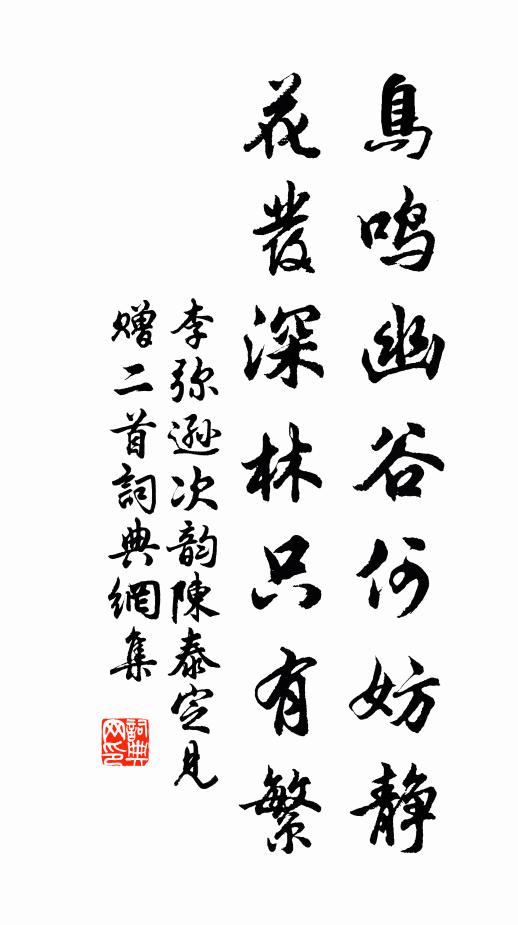 鳥鳴幽谷何妨静
花發深林只有繁
李弥遜次韵陳泰定見
赠二首詞典網集
詞典网印